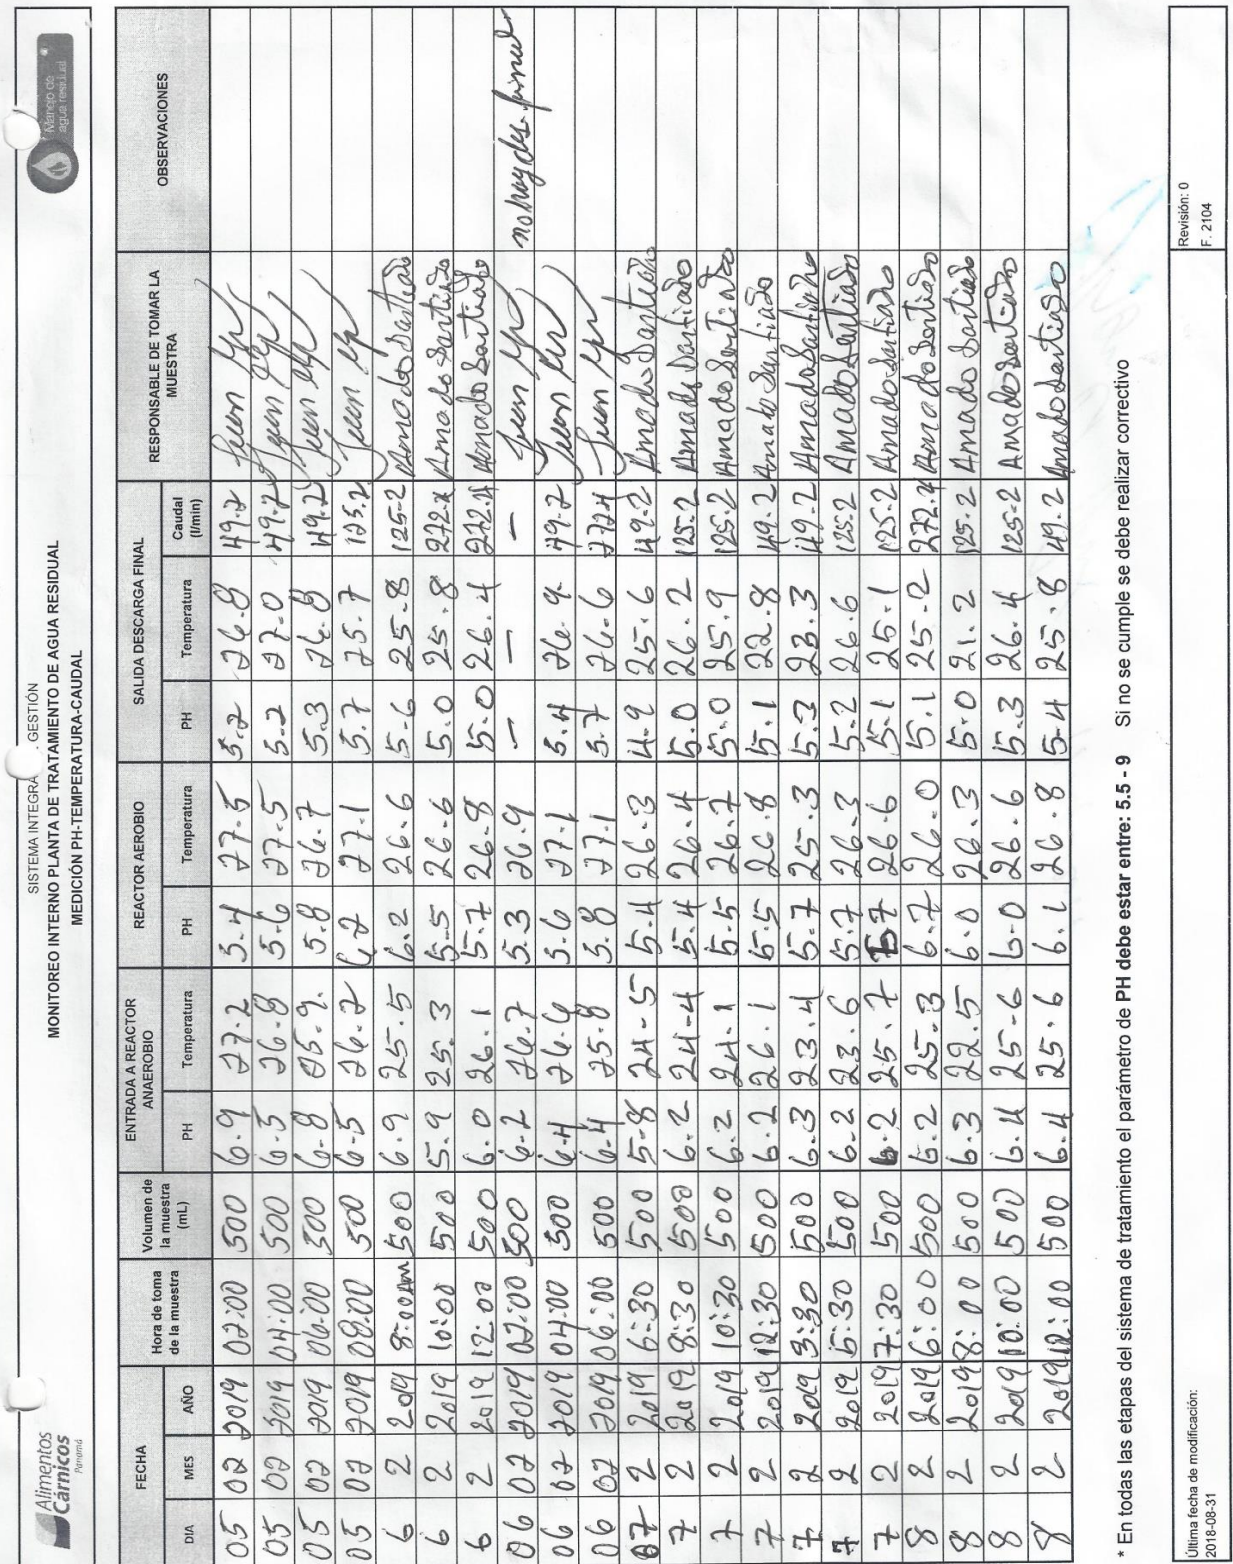 Alimentos
Cárnicos
Panamá
SISTEMA INTEGRA GESTIÓN
MONITOREO INTERNO PLANTA DE TRATAMIENTO DE AGUA RESIDUAL
MEDICIÓN PH-TEMPERATURA-CAUDAL
Manejo de
agua residual
FECHA Hora de toma de la muestra Volumen de la muestra (mL) ENTRADA A REACTOR ANAEROBIO REACTOR AEROBIO SALIDA DESCARGA FINAL RESPONSABLE DE TOMAR LA MUESTRA OBSERVACIONES
DIA MES AÑO PH Temperatura PH Temperatura PH Temperatura Caudal (l/min)
05 02 2019 02:00 500 6.9 27.2 5.4 27.5 5.2 26.8 49.2 Juan
05 02 2019 04:00 500 6.5 26.8 5.6 27.5 5.2 27.0 49.2 Juan
05 02 2019 06:00 500 6.8 25.9 5.8 26.7 5.3 26.8 49.2 Juan
05 02 2019 08:00 500 6.5 26.2 6.2 27.1 5.7 25.7 125.2 Juan
6 2 2019 8:00 AM 500 6.9 25.5 6.2 26.6 5.6 25.8 125.2 Amado Santiado
6 2 2019 10:00 500 5.9 25.3 5.5 26.6 5.0 25.8 272.4 Amado Santiado
6 2 2019 12:00 500 6.0 26.1 5.7 26.8 5.0 26.4 272.4 Amado Santiado
06 02 2019 02:00 500 6.2 26.7 5.3 26.9 — — — Juan no hay des. final
06 02 2019 04:00 500 6.4 26.6 5.6 27.1 5.4 26.9 49.2 Juan
06 02 2019 06:00 500 6.4 25.8 5.8 27.1 5.7 26.6 272.4 Juan
07 2 2019 6:30 500 5.8 24.5 5.4 26.3 4.9 25.6 49.2 Amado Santiado
7 2 2019 8:30 500 6.2 24.4 5.4 26.4 5.0 26.2 125.2 Amado Santiado
7 2 2019 10:30 500 6.2 24.1 5.5 26.7 5.0 25.9 125.2 Amado Santiado
7 2 2019 12:30 500 6.2 26.1 5.5 26.8 5.1 22.8 49.2 Amado Santiado
7 2 2019 3:30 500 6.3 23.4 5.7 25.3 5.3 23.3 49.2 Amado Santiado
7 2 2019 5:30 500 6.2 23.6 5.7 26.3 5.2 26.6 125.2 Amado Santiado
7 2 2019 7:30 500 6.2 25.7 5.7 26.6 5.1 25.1 125.2 Amado Santiado
8 2 2019 6:00 500 6.2 25.3 6.7 26.0 5.1 25.2 272.4 Amado Santiado
8 2 2019 8:00 500 6.3 22.5 6.0 26.3 5.0 21.2 125.2 Amado Santiado
8 2 2019 10:00 500 6.4 25.6 6.0 26.6 5.3 26.4 125.2 Amado Santiado
8 2 2019 12:00 500 6.4 25.6 6.1 26.8 5.4 25.8 49.2 Amado Santiado
* En todas las etapas del sistema de tratamiento el parámetro de PH debe estar entre: 5.5 - 9 Si no se cumple se debe realizar correctivo
Última fecha de modificación:
2018-08-31
Revisión: 0
F. 2104